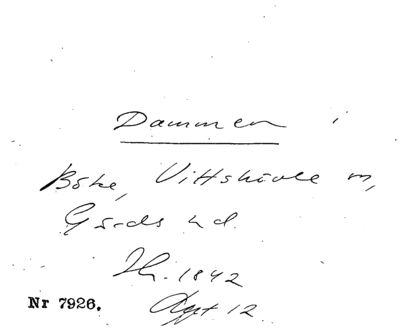 Dammen i
Böke, Vittskövle sn,
Gärds hd.
Sk. 1842
Nr 7926. Avst 12